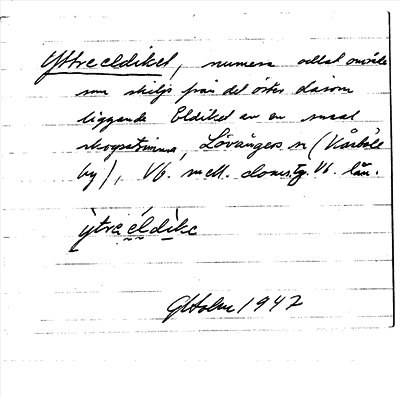 Yttre eldiket, numera odlat område
som skiljs från det öster därom
liggande Eldiket av en smal
skogsstrimma, Lövångers sn (Kårböle
by), Vb. mell. doms.tg. Vb. län.
ỳtrə éldìkə
GHolm 1947